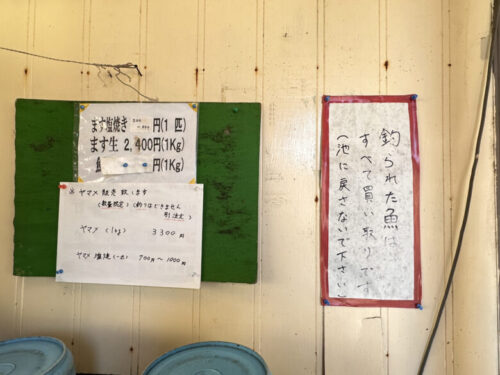 ます塩焼き 円(1 匹)
ます生 2,400円(1Kg)
円(1Kg)
ヤマメ 販売致します
(数量限定)(釣りはできません
ヤマメ (1kg) 3300円
ヤマメ 塩焼(一匹) 700円〜1000円
釣られた魚は
すべて買い取りです
(池に戻さないで下さい)